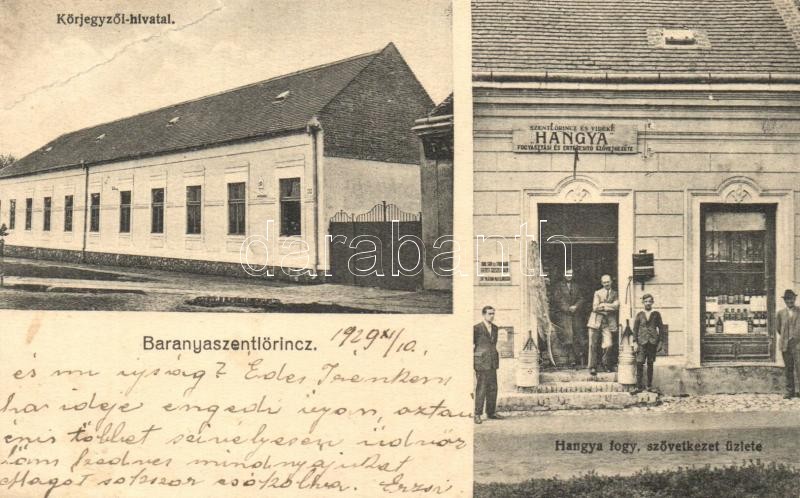 Körjegyzői-hivatal.
SZENTLŐRINCZ ÉS VIDÉKE
"HANGYA"
FOGYASZTÁSI ÉS ÉRTÉKESITŐ SZÖVETKEZETE
darabanth
Baranyaszentlőrincz. 1929 XI/10.
és mi ujság? Édes Irénkem
ha ideje engedi irjon, aztán
én is többet szivélyesen üdvöz
löm kedves mindnyájukat
Magát sokszor csókolva. Erzsi
Hangya fogy. szövetkezet üzlete